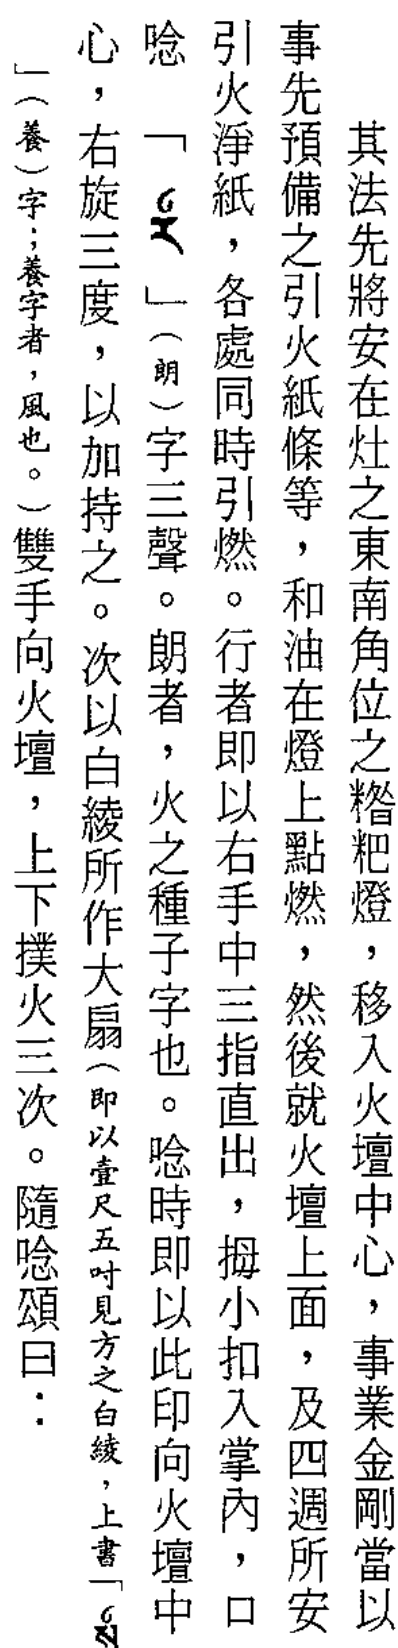 其法先將安在灶之東南角位之糌粑燈，移入火壇中心，事業金剛當以
事先預備之引火紙條等，和油在燈上點燃，然後就火壇上面，及四週所安
引火淨紙，各處同時引燃。行者即以右手中三指直出，拇小扣入掌內，口
唸「རཾ」（朗）字三聲。朗者，火之種子字也。唸時即以此印向火壇中
心，右旋三度，以加持之。次以白綾所作大扇（即以壹尺五吋見方之白綾，上書「ཡཾ
」（養）字；養字者，風也。）雙手向火壇，上下撲火三次。隨唸頌曰：